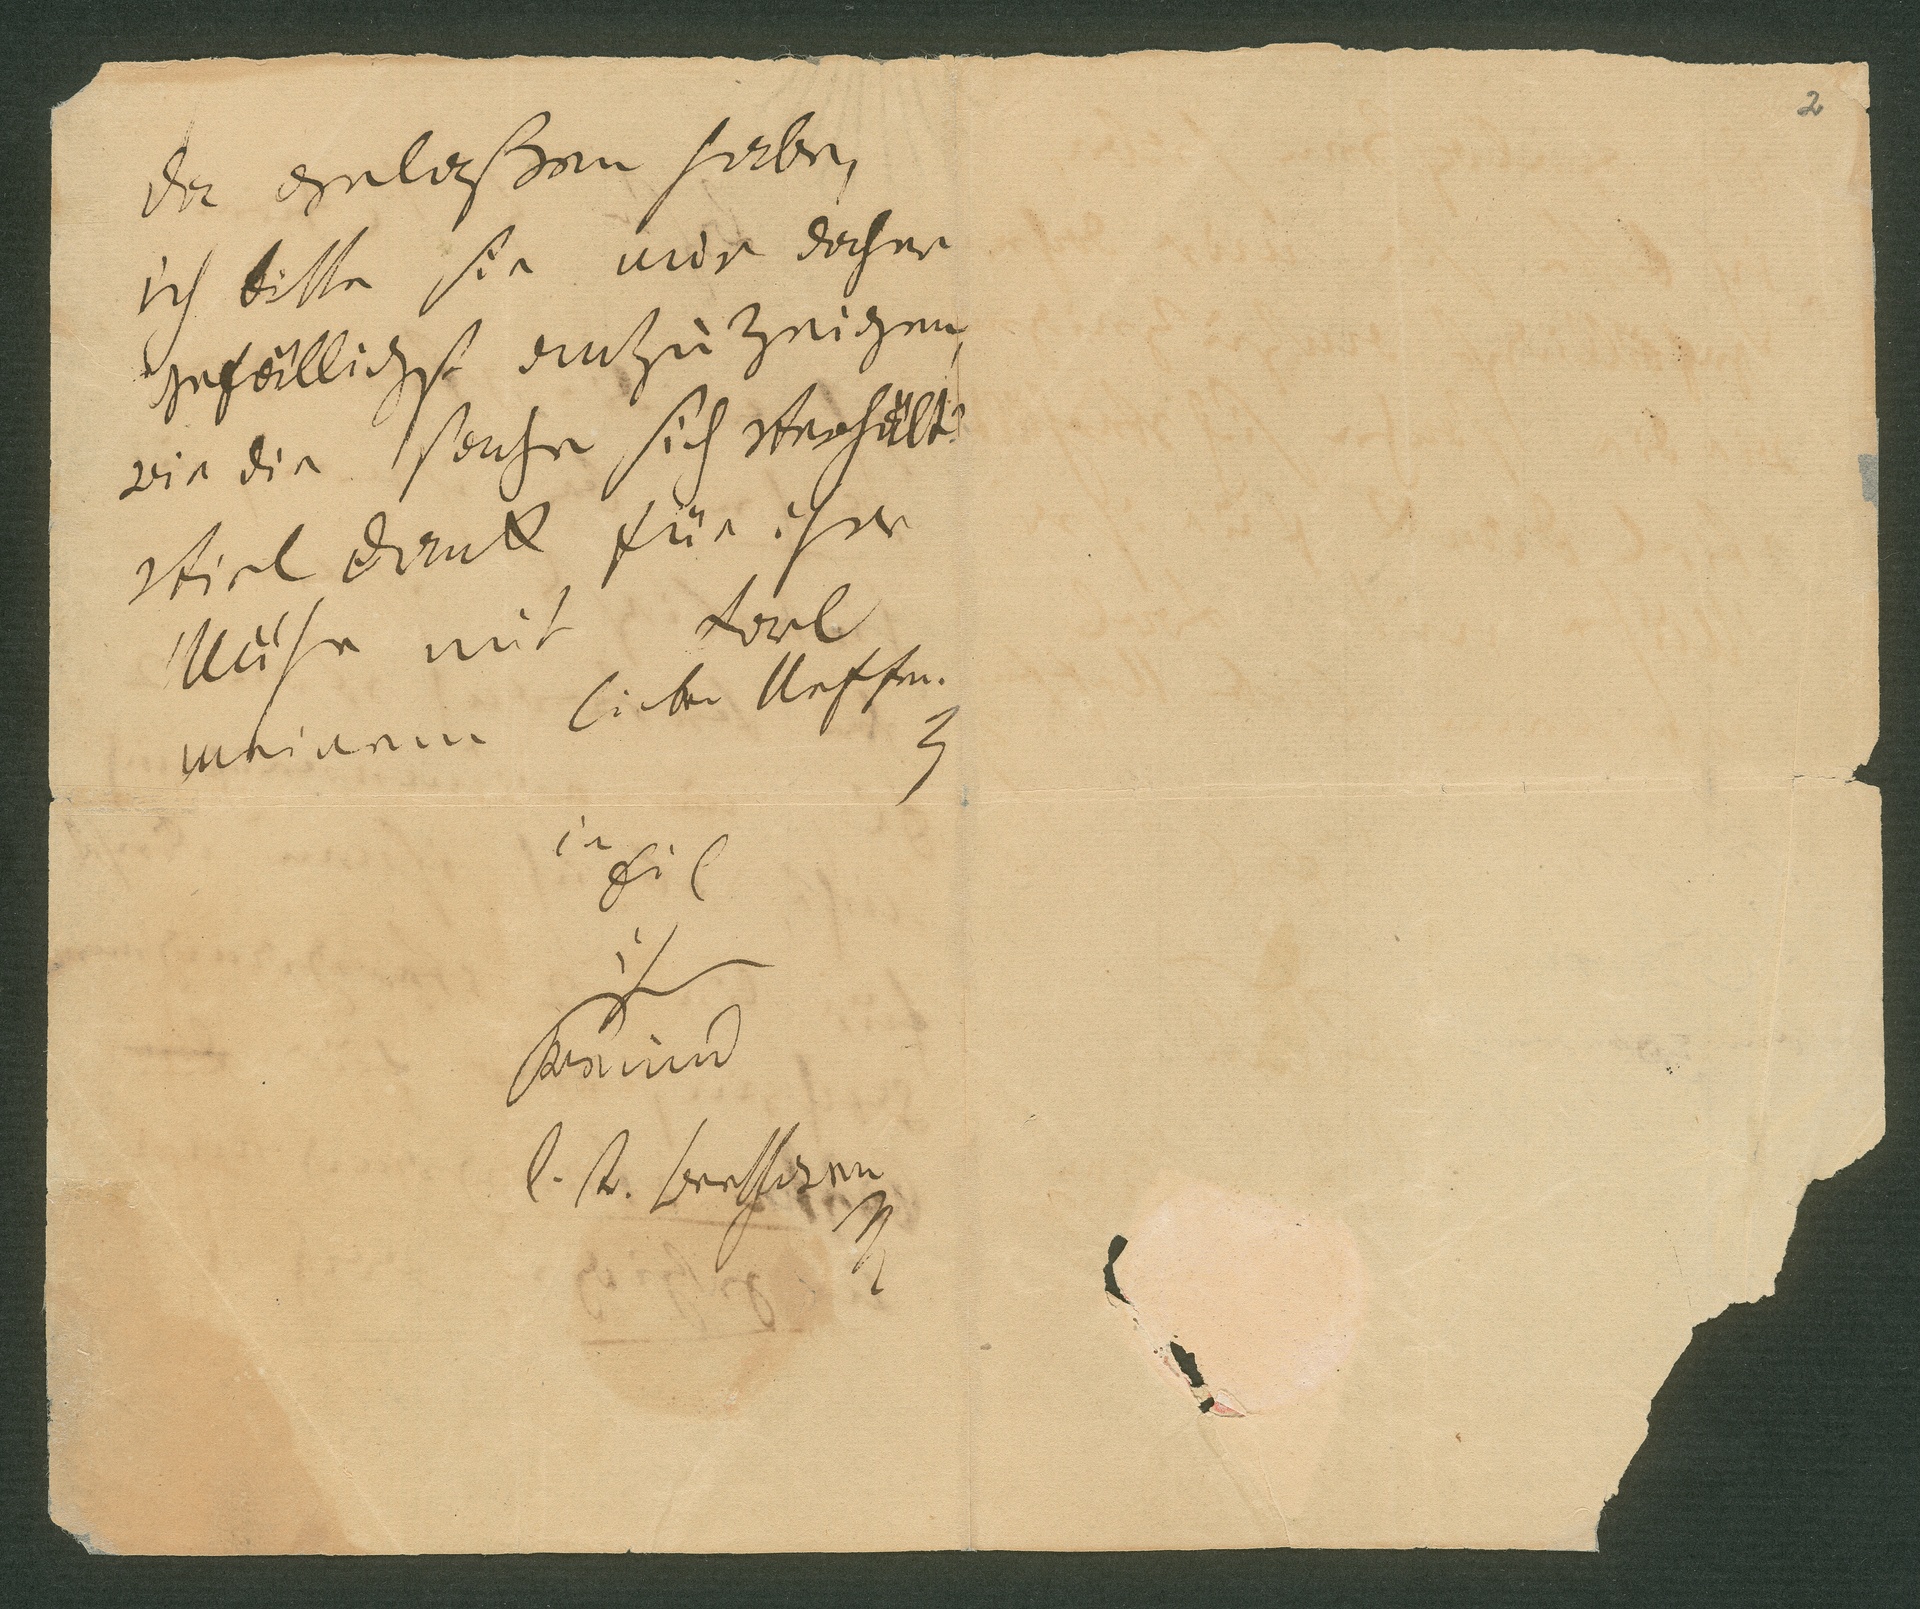 2
da gelaßen habe,
ich bitte sie mir daher
gefälligst anzuzeigen,
wie die sache sich verhält
viel Dank für ihre
Mühe mit Karl
meinem lieben Neffen.
in Eil
ihr
Freund
l. v. Beethoven